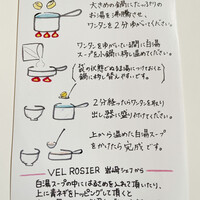 大きめのお鍋にたっぷりの
お湯を沸騰させ、
ワンタンを2分ゆがいてください。
ワンタンをゆがいている間に白湯
スープを小鍋に移し温めてください。
袋の状態でぬるま湯につけておくと
小鍋に移し替えしやすいです。
2分経ったらワンタンを取り
出し器に盛り付けてください。
上から温めた白湯スープ
をかけたら完成です。
VEL ROSIER 岩崎シェフから
白湯スープの中にはるさめを入れて頂いたり、
上に青ネギをトッピングして頂くと